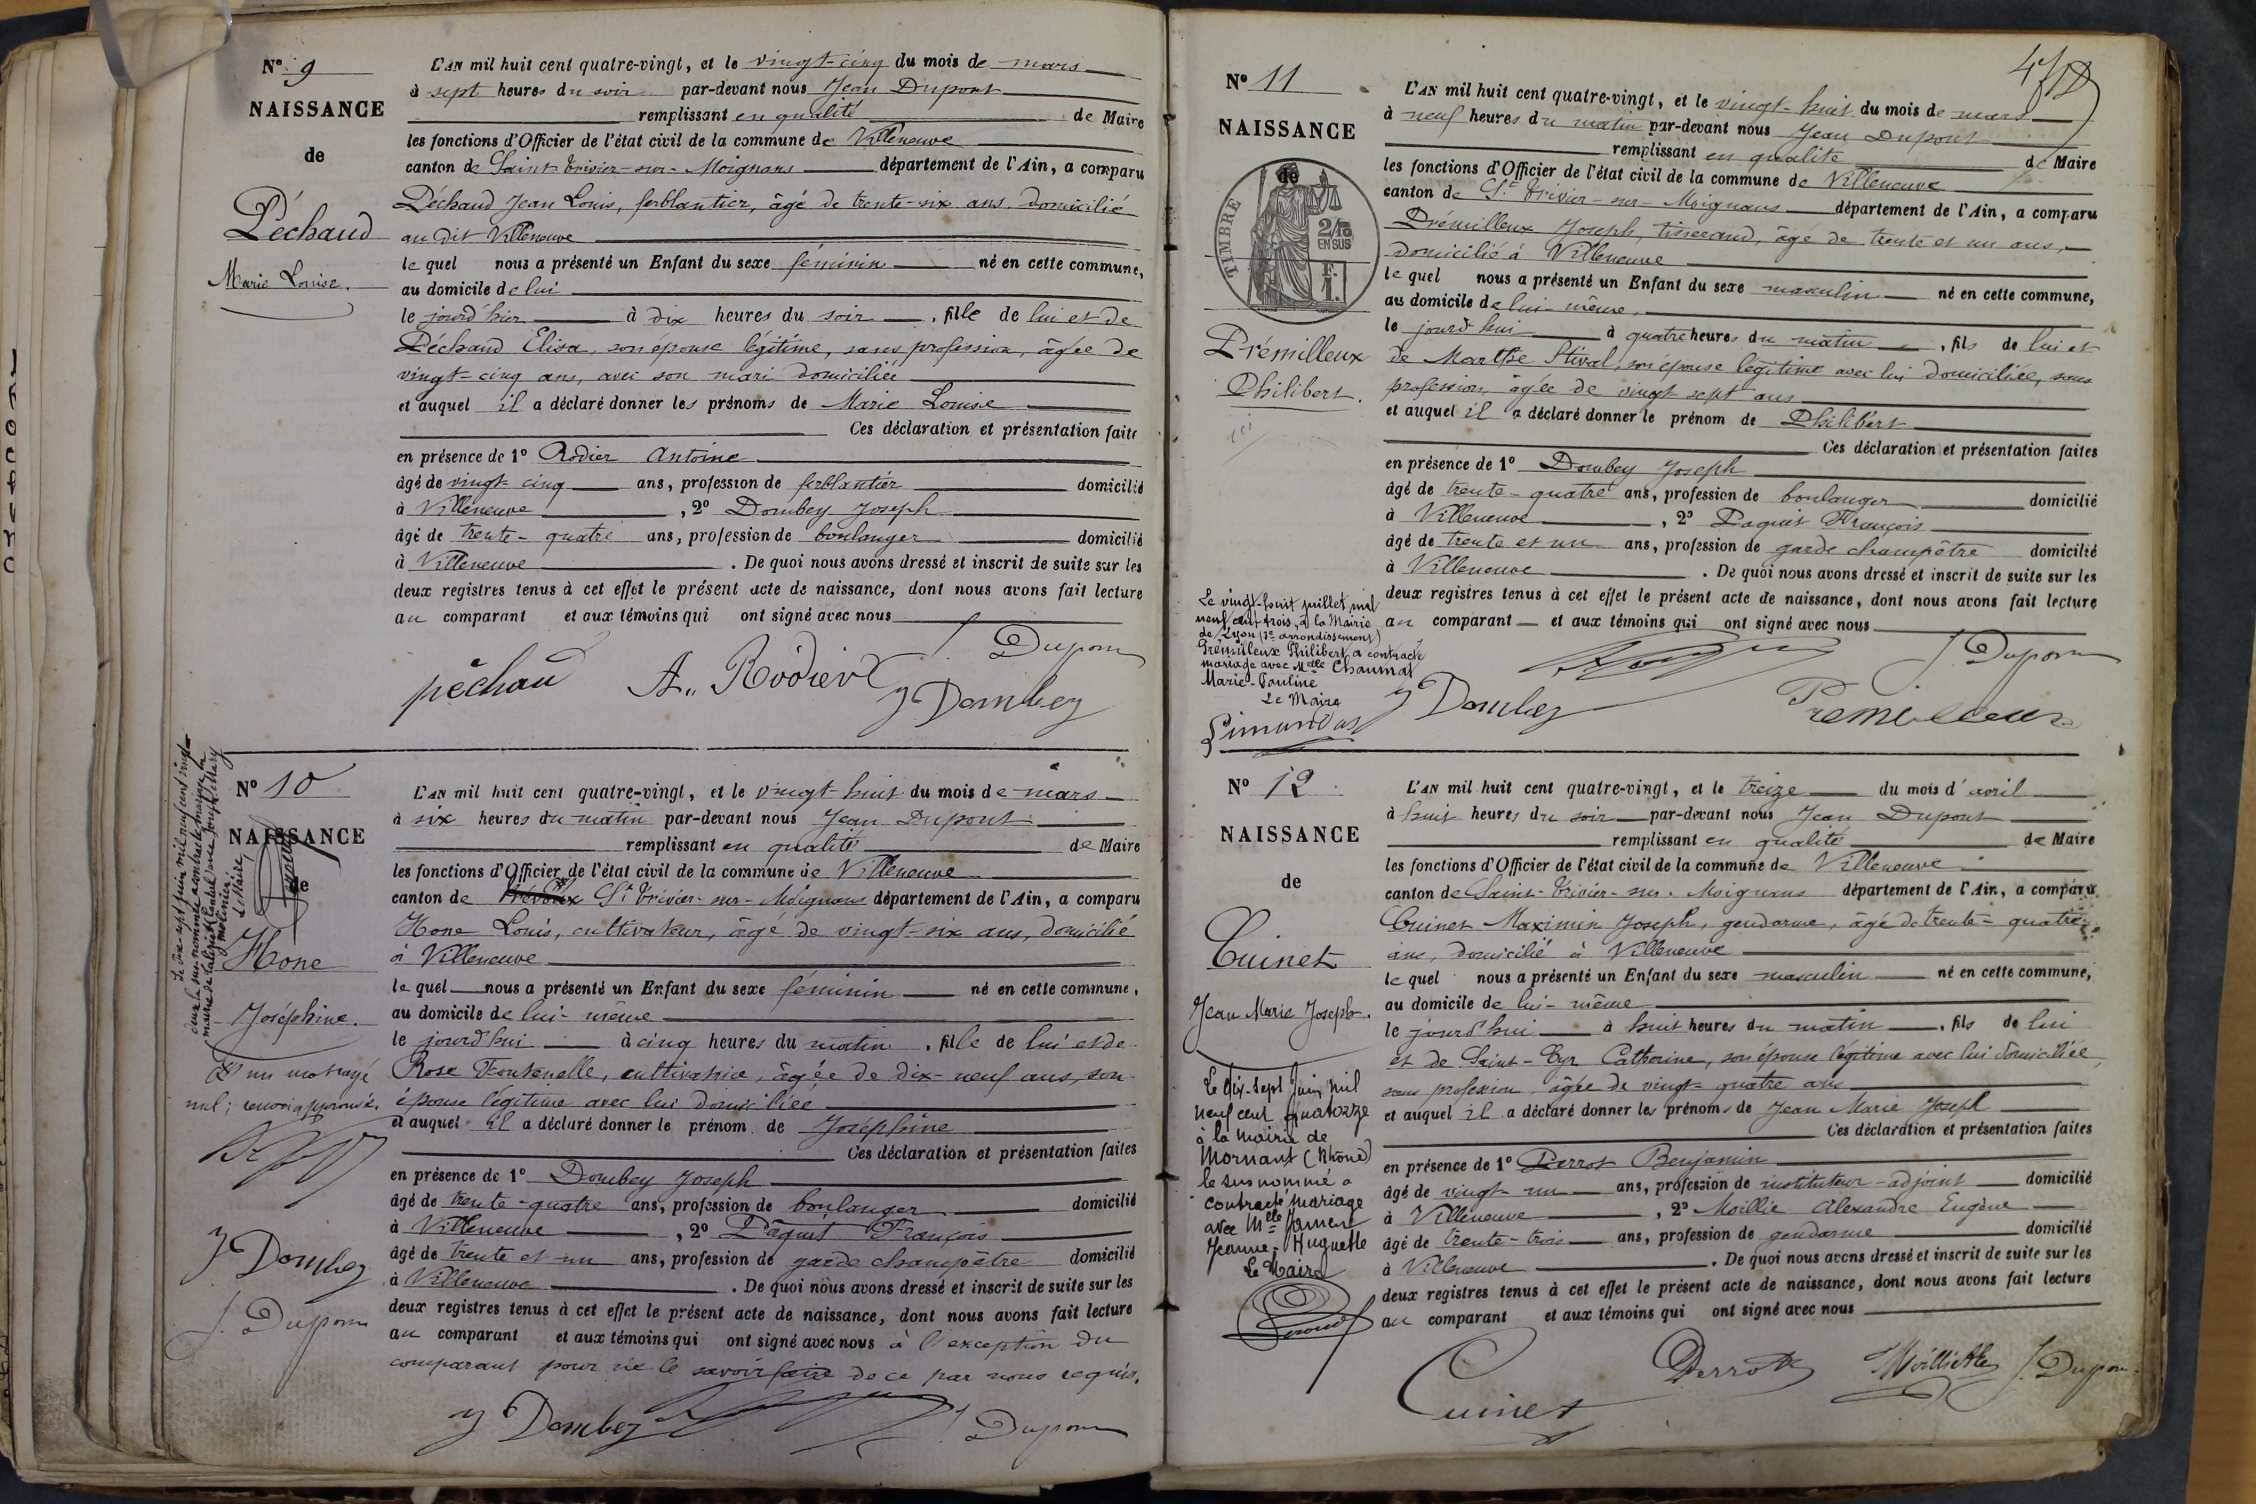 N° 9
NAISSANCE
de
Péchaud
Marie Louise.
L'AN mil huit cent quatre-vingt, et le vingt-cinq du mois de mars
à sept heures du soir par-devant nous Jean Dupont
remplissant en qualité de Maire
les fonctions d'Officier de l'état civil de la commune de Villeneuve
canton de Saint-Trivier-sur-Moignans département de l'Ain, a comparu
Péchaud Jean Louis, ferblantier, âgé de trente-six ans, domicilié
au dit Villeneuve
le quel nous a présenté un Enfant du sexe féminin né en cette commune,
au domicile de lui
le jourd'hier à dix heures du soir, fille de lui et de
Péchaud Elisa, son épouse légitime, sans profession, âgée de
vingt-cinq ans, avec son mari domiciliée
et auquel il a déclaré donner les prénoms de Marie Louise
Ces déclaration et présentation faite
en présence de 1° Rodier Antoine
âgé de vingt-cinq ans, profession de ferblantier domicilié
à Villeneuve, 2° Dombey Joseph
âgé de trente-quatre ans, profession de boulanger domicilié
à Villeneuve. De quoi nous avons dressé et inscrit de suite sur les
deux registres tenus à cet effet le présent acte de naissance, dont nous avons fait lecture
au comparant et aux témoins qui ont signé avec nous
J. Dupont
péchaud A. Rodier
J Dombey
N° 10
NAISSANCE
de
Hone
Joséphine.
un mot rayé
nul; renvoi approuvé.
J Dombey
J. Dupont
Le dix-sept juin mil neuf cent vingt-
la susnommée a contracté mariage
Le Maire
L'AN mil huit cent quatre-vingt, et le vingt-huit du mois de mars
à six heures du matin par-devant nous Jean Dupont
remplissant en qualité de Maire
les fonctions d'Officier de l'état civil de la commune de Villeneuve
canton de Trévoux St Trivier-sur-Moignans département de l'Ain, a comparu
Hone Louis, cultivateur, âgé de vingt-six ans, domicilié
à Villeneuve
le quel nous a présenté un Enfant du sexe féminin né en cette commune,
au domicile de lui-même
le jourd'hui à cinq heures du matin, fille de lui et de
Rose Fontenelle, cultivatrice, âgée de dix-neuf ans, son
épouse légitime avec lui domiciliée
et auquel il a déclaré donner le prénom de Joséphine
Ces déclaration et présentation faites
en présence de 1° Dombey Joseph
âgé de trente-quatre ans, profession de boulanger domicilié
à Villeneuve, 2° Paquit François
âgé de trente et un ans, profession de garde champêtre domicilié
à Villeneuve. De quoi nous avons dressé et inscrit de suite sur les
deux registres tenus à cet effet le présent acte de naissance, dont nous avons fait lecture
au comparant et aux témoins qui ont signé avec nous à l'exception du
comparant pour ne le savoir faire de ce par nous requis.
J Dombey J. Dupont
N° 11
NAISSANCE
de
TIMBRE
2/10
EN SUS
Prémilleux
Philibert.
Le vingt-huit juillet mil
neuf cent trois, à la Mairie
de Lyon (3e arrondissement)
Prémilleux Philibert a contracté
mariage avec Melle Chaumat
Marie-Pauline
Le Maire
L'AN mil huit cent quatre-vingt, et le vingt-huit du mois de mars
à neuf heures du matin par-devant nous Jean Dupont
remplissant en qualité de Maire
les fonctions d'Officier de l'état civil de la commune de Villeneuve
canton de St Trivier-sur-Moignans département de l'Ain, a comparu
Prémilleux Joseph, tisserand, âgé de trente et un ans,
domicilié à Villeneuve
le quel nous a présenté un Enfant du sexe masculin né en cette commune,
au domicile de lui-même,
le jourd'hui à quatre heures du matin, fils de lui et
de Marthe Stival, son épouse légitime avec lui domiciliée, sans
profession, âgée de vingt sept ans
et auquel il a déclaré donner le prénom de Philibert
Ces déclaration et présentation faites
en présence de 1° Dombey Joseph
âgé de trente-quatre ans, profession de boulanger domicilié
à Villeneuve, 2° Paquit François
âgé de trente et un ans, profession de garde champêtre domicilié
à Villeneuve. De quoi nous avons dressé et inscrit de suite sur les
deux registres tenus à cet effet le présent acte de naissance, dont nous avons fait lecture
au comparant et aux témoins qui ont signé avec nous
J. Dupont
J Dombey Prémilleux
N° 12
NAISSANCE
de
Cuinet
Jean Marie Joseph.
Le dix-sept juin mil
neuf cent quatorze
à la mairie de
Mornant (Rhône)
le susnommé a
contracté mariage
avec Melle Jament
Jeanne-Huguette
Le Maire
L'AN mil huit cent quatre-vingt, et le treize du mois d'avril
à huit heures du soir par-devant nous Jean Dupont
remplissant en qualité de Maire
les fonctions d'Officier de l'état civil de la commune de Villeneuve
canton de Saint-Trivier-sur-Moignans département de l'Ain, a comparu
Cuinet Maximin Joseph, gendarme, âgé de trente-quatre
ans, domicilié à Villeneuve
le quel nous a présenté un Enfant du sexe masculin né en cette commune,
au domicile de lui-même
le jourd'hui à huit heures du matin, fils de lui
et de Saint-Cyr Catherine, son épouse légitime avec lui domiciliée,
sans profession, âgée de vingt-quatre ans
et auquel il a déclaré donner les prénoms de Jean Marie Joseph
Ces déclaration et présentation faites
en présence de 1° Perrot Benjamin
âgé de vingt-un ans, profession de instituteur-adjoint domicilié
à Villeneuve, 2° Moillie Alexandre Eugène
âgé de trente-trois ans, profession de gendarme domicilié
à Villeneuve. De quoi nous avons dressé et inscrit de suite sur les
deux registres tenus à cet effet le présent acte de naissance, dont nous avons fait lecture
au comparant et aux témoins qui ont signé avec nous
Cuinet Perrot J. Dupont